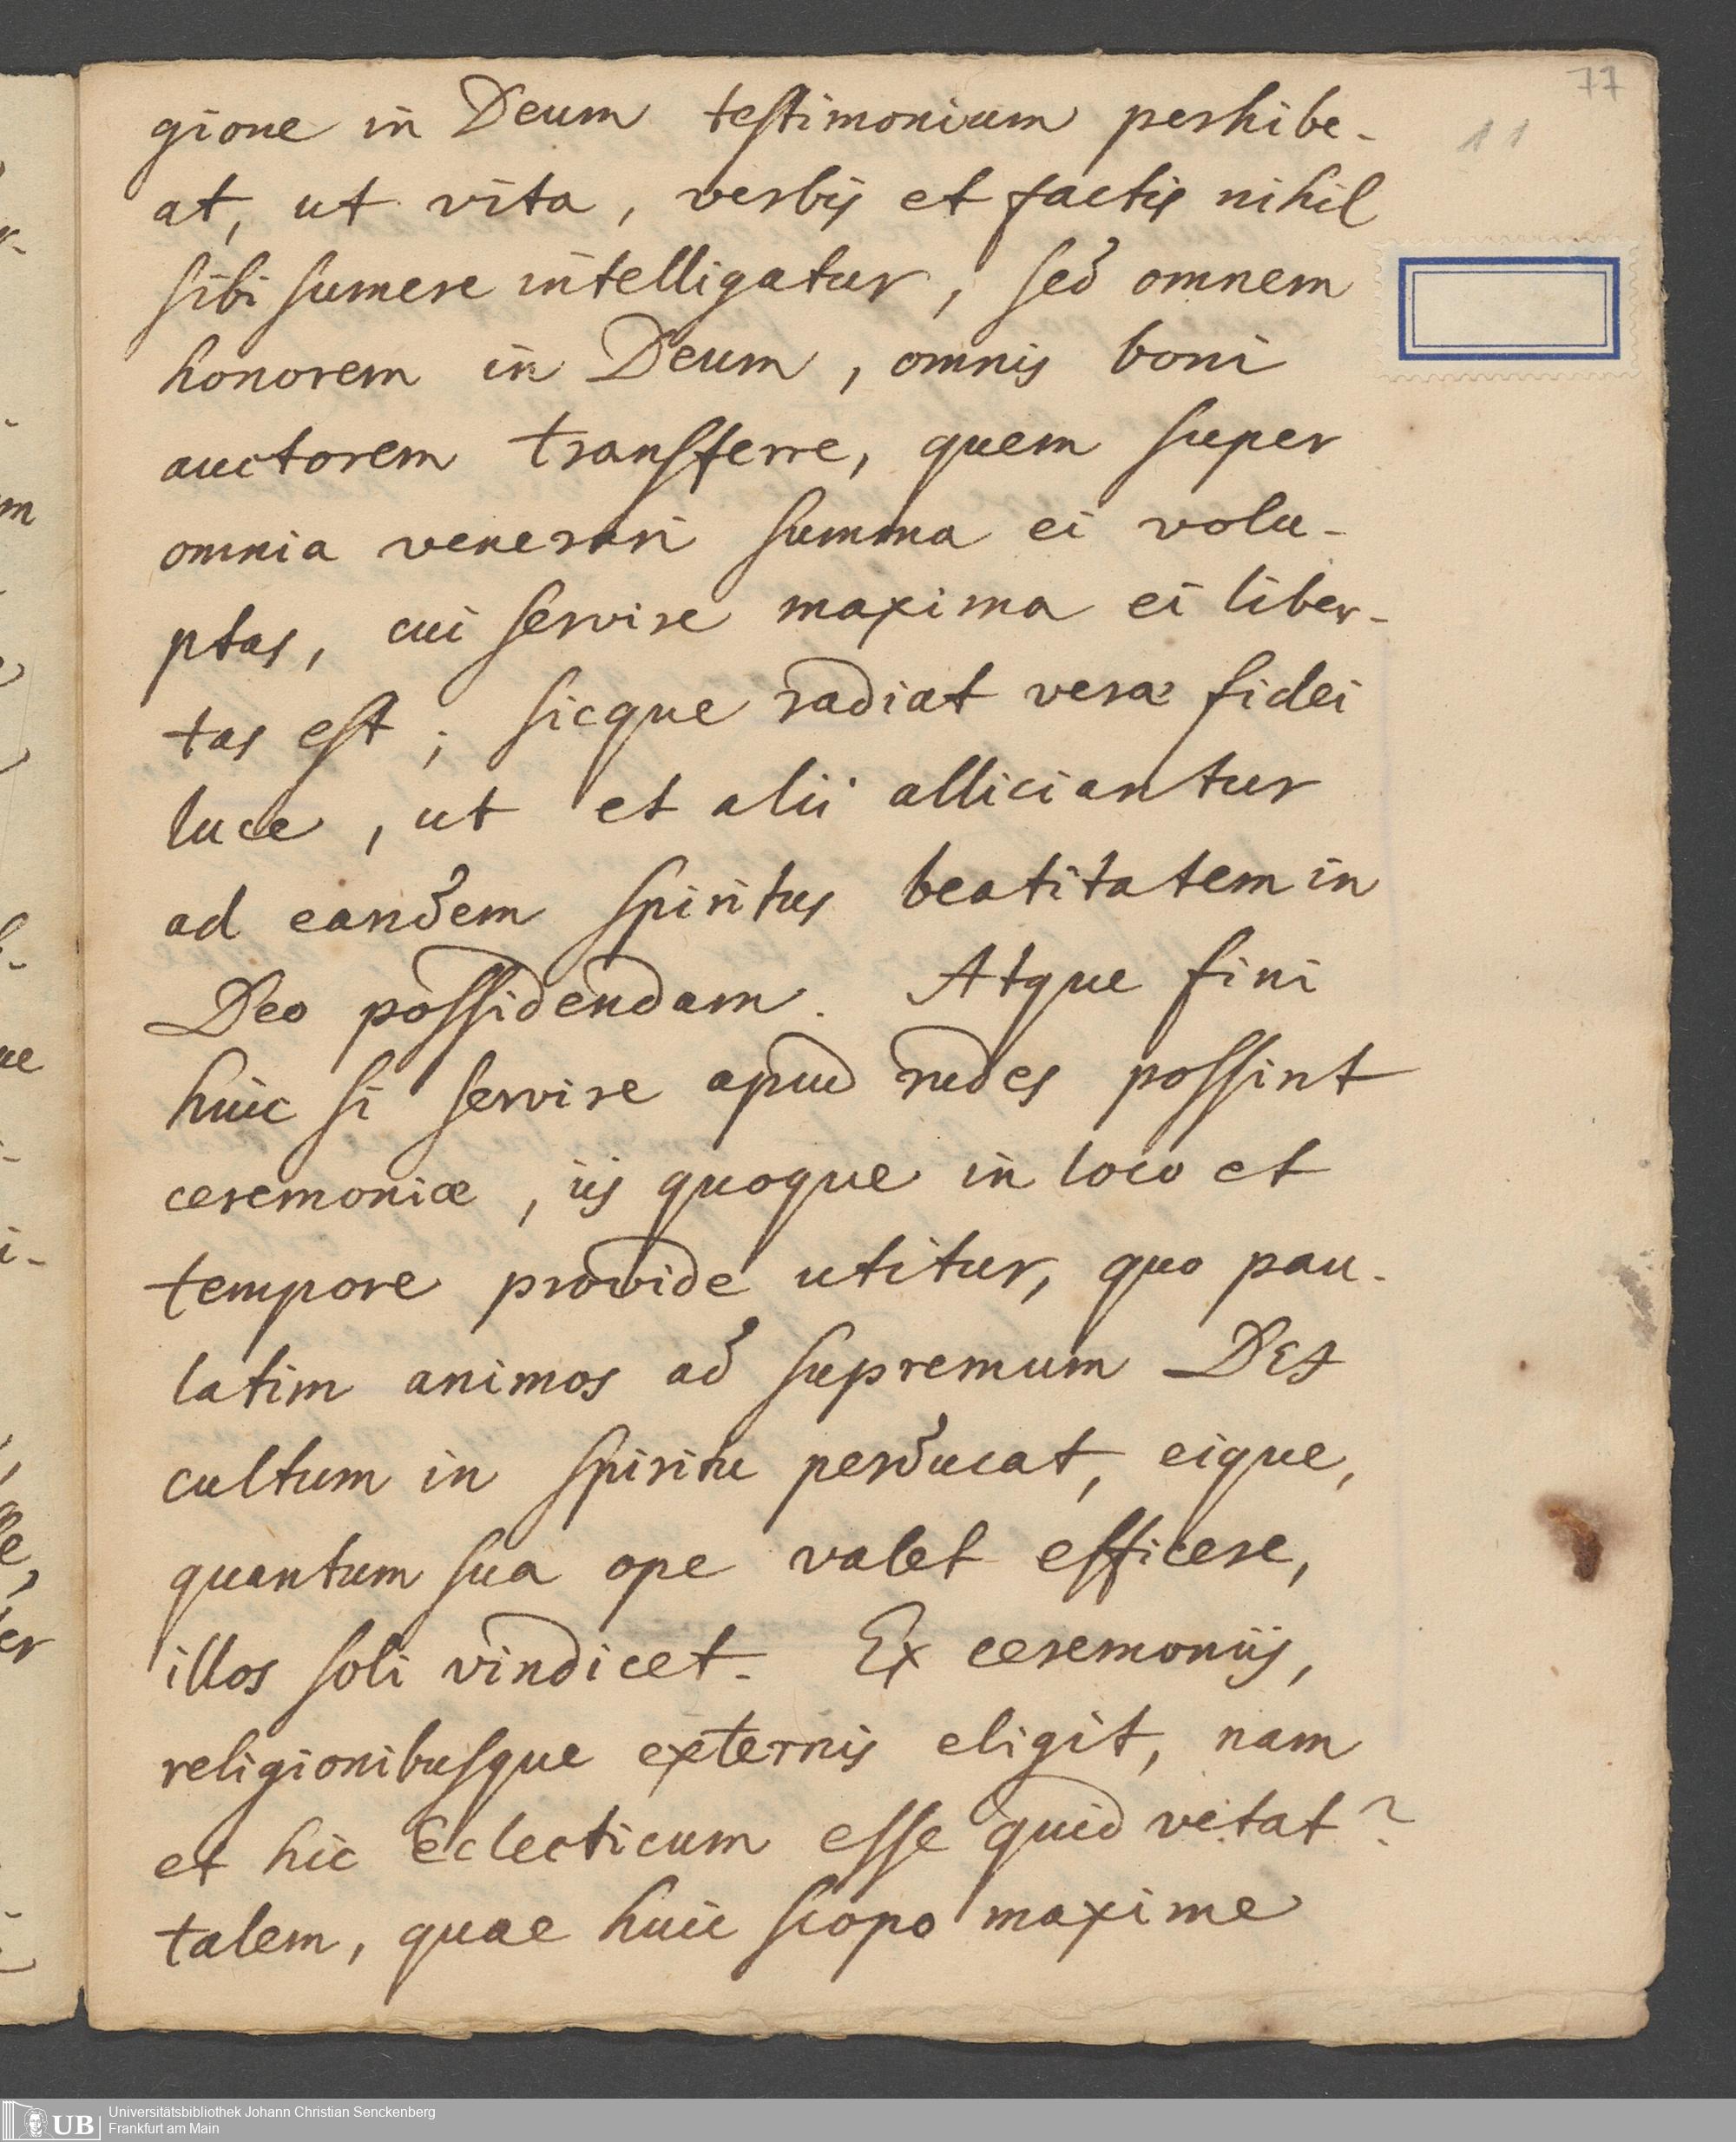 77
11
gione in Deum testimonium perhibe-
at, ut vita, verbis et factis nihil
sibi sumere intelligatur, sed omnem
honorem in Deum, omnis boni
auctorem transferre, quem super
omnia venerari summa ei volu-
ptas, cui servire maxima ei liber-
tas est; sicque radiat vera fidei
luce, ut et alii alliciantur
ad eandem spiritus beatitatem in
Deo possidendam. Atque fini
huic si servire apud rudes possint
ceremoniæ, iis quoque in loco et
tempore provide utitur, quo pau-
latim animos ad supremum DEI
cultum in spiritu perducat, eique,
quantum sua ope valet efficere,
illos soli vindicet. Ex ceremoniis,
religionibusque externis eligit, nam
et hic Eclecticum esse quid vetat?
talem, quae huic scopo maxime
UB
Universitätsbibliothek Johann Christian Senckenberg
Frankfurt am Main